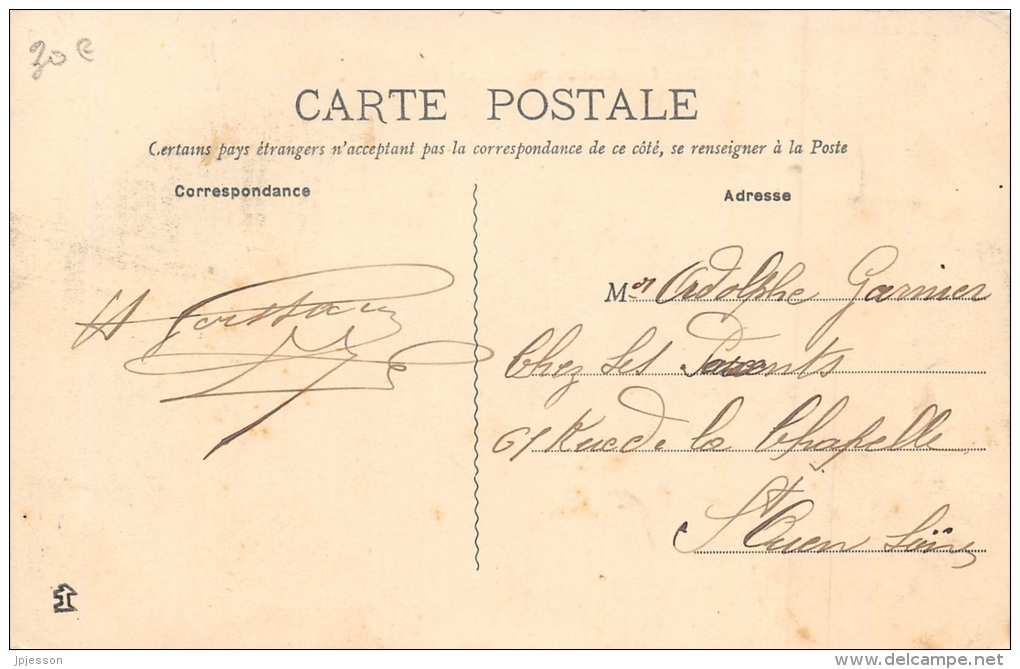 30 €
CARTE POSTALE
Certains pays étrangers n'acceptant pas la correspondance de ce côté, se renseigner à la Poste
Correspondance
Adresse
Mor Adolphe Garnier
Chez Ses Parents
61 Rue de la Chapelle
St Ouen Seine
H
jpjesson
delcampe.net